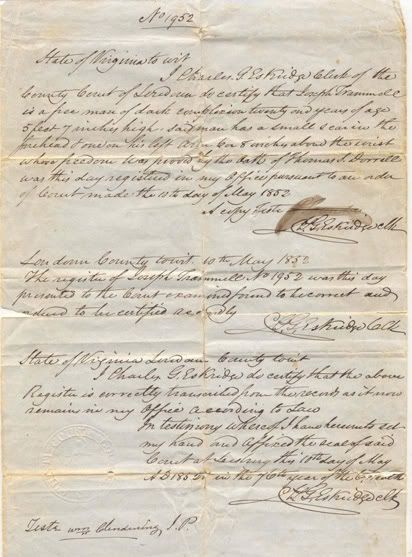 No 1952
State of Virginia to wit
I Charles G. Eskridge Clerk of the
County Court of Loudoun do certify that Joseph Trammell
is a free man of dark complexion twenty one years of age
5 feet 7 inches high. Said man has a small scar in the
forehead & one on his left arm 8 inches above the wrist
whose freedom was proved by the oath of Thomas S. Dorrell
was this day registered in my Office pursuant to an order
of Court made the 10th day of May 1852
A copy Teste
C. G. Eskridge Clk
Loudoun County to wit 10th May 1852
The register of Joseph Trammell No 1952 was this day
presented to the Court examined found to be correct and
ordered to be certified accordingly
C. G. Eskridge Clk
State of Virginia Loudoun County to wit
I Charles G. Eskridge do certify that the above
Register is correctly transcribed from the records as it now
remains in my Office according to Law
In testimony whereof I have hereunto set
my hand and affixed the seal of said
Court at Leesburg this 10th day of May
AD 1852 in the 76th year of the
C. G. Eskridge Clk
Teste Wm Clendening J.P.